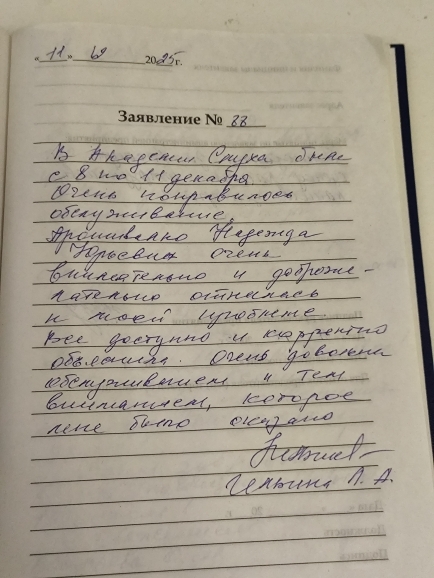 "11" 12 2025 г.
Заявление № 88
В Академии Слуха была
с 8 по 11 декабря
Очень понравилось
обслуживание.
Надежда
Юрьевна очень
внимательно и доброже-
лательно отнеслась
к моей проблеме.
Все доступно и корректно
объяснила. Очень довольна
обслуживанием и тем
вниманием, которое
мне было оказано
Ильина Л. А.